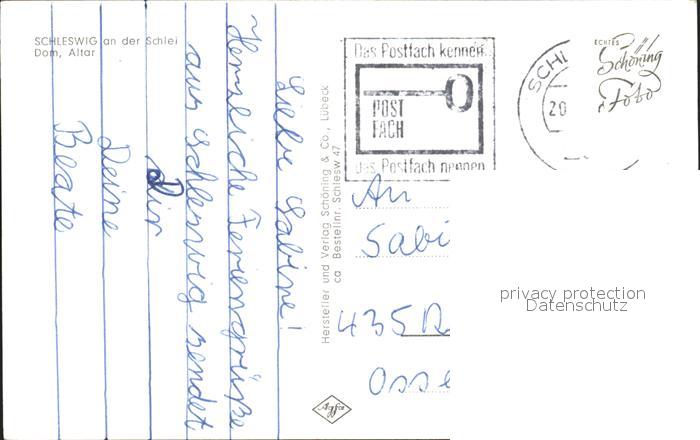 SCHLESWIG an der Schlei
Dom, Altar
Liebe Sabine!
Herzliche Feriengrüße
aus Schleswig sendet
Dir
Deine
Beate
Hersteller und Verlag Schöning & Co., Lübeck
ca Bestellnr. Schlesw 47
Agfa
Das Postfach kennen..
POST
FACH
das Postfach nennen
SCHL
20
ECHTES
Schöning
Foto
An
Sabi
435 R
Osse
privacy protection
Datenschutz